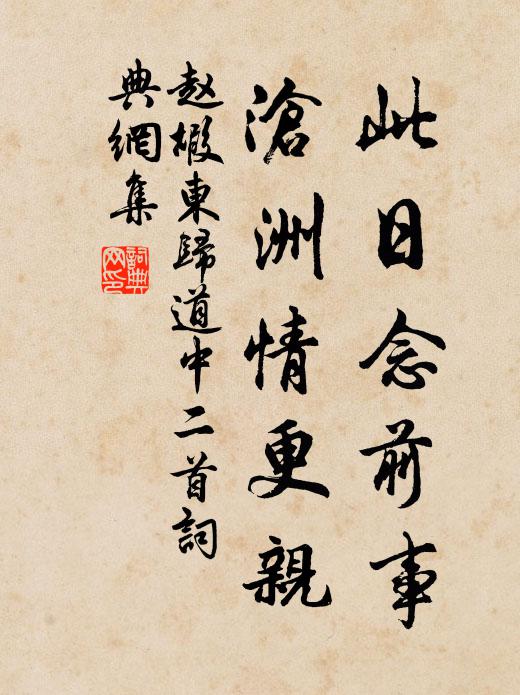 此日念前事
滄洲情更親
赵嘏東歸道中二首詞
典網集
詞典
网印